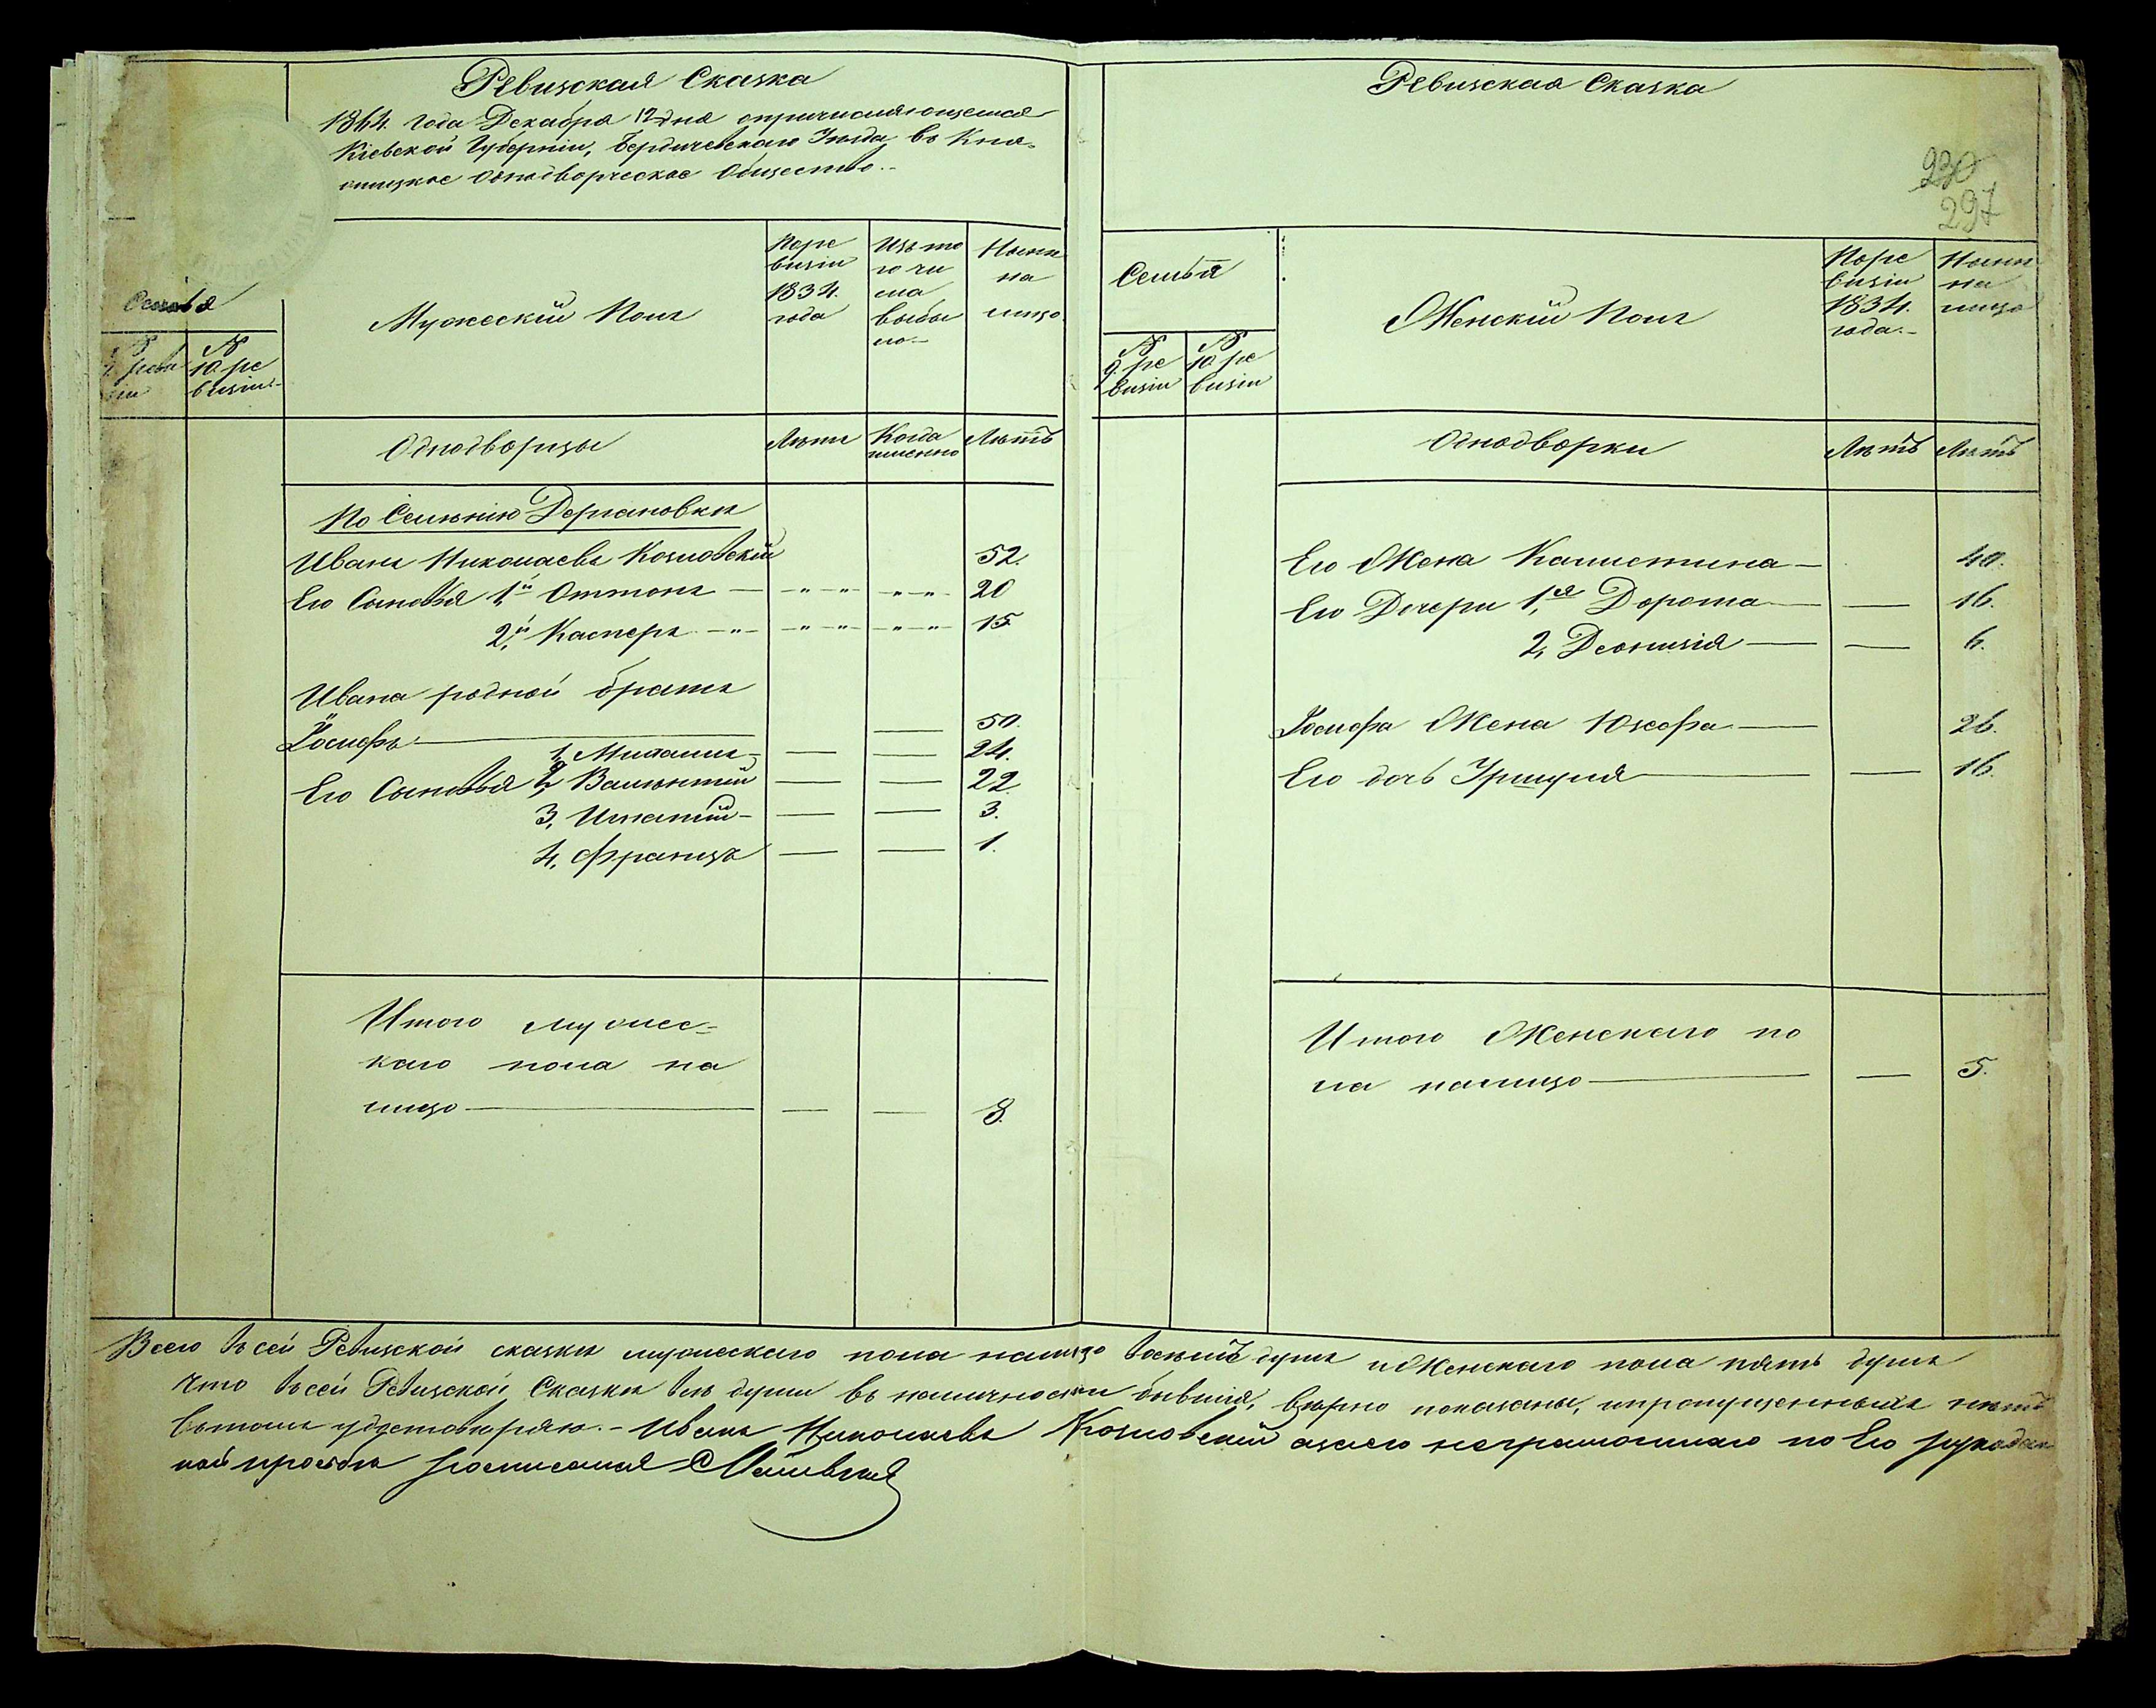 Ревизская Сказка
1864. года Декабря 12 дня опричисляющемся
Кіевской Губерніи, Бердичевскаго Уѣзда, въ Кня-
жицкое Однодворческое Общество.-
Семья
№ 9. реви зіи
№ 10. ре визіи.-
Мужескій Полъ
По ре визіи 1834. года
Изъ то го чи сла выбы ло.-
Нынѣ на лицо.
Однодворцы
Лѣта
Когда именно
Лѣтъ
По Селенію Держановки
Иванъ Николаевъ Козловскій 52.
Его Сыновья 1й Оттонъ — 20
2й Касперъ — 15
Ивана родной братъ
Іосифъ — 50.
1, Михаилъ — 24.
Его Сыновья 2, Валентій — 22.
3, Игнатій — 3.
4, Францъ — 1.
Итого мужес-
каго пола на
лицо — 8.
Ревизская Сказка
230
297
Семья
№ 9. ре визіи
№ 10. ре визіи
Женскій Полъ
По ре визіи 1834. года.-
Нынѣ на лицо
Однодворки
Лѣтъ
Лѣтъ
Его Жена Калистина — 40.
Его Дочери 1,я Дорота — 16.
2, Деонизія — 6.
Іосифа Жена Юзефа — 26.
Его дочь — 16.
Итого Женскаго по
ла налицо — 5.
Всего въ сей Ревизской сказкѣ мужескаго пола налицо восемъ душъ и Женскаго пола пять душъ
Что въ сей Ревизской Сказкѣ всѣ души въ наличности бывшія, вѣрно показаны, и пропущенныхъ нѣтъ
въ томъ удостовѣряю.- Иванъ Николаевъ Козловскій а за него неграмотнаго по Его рукодан
ной прозьбѣ росписался